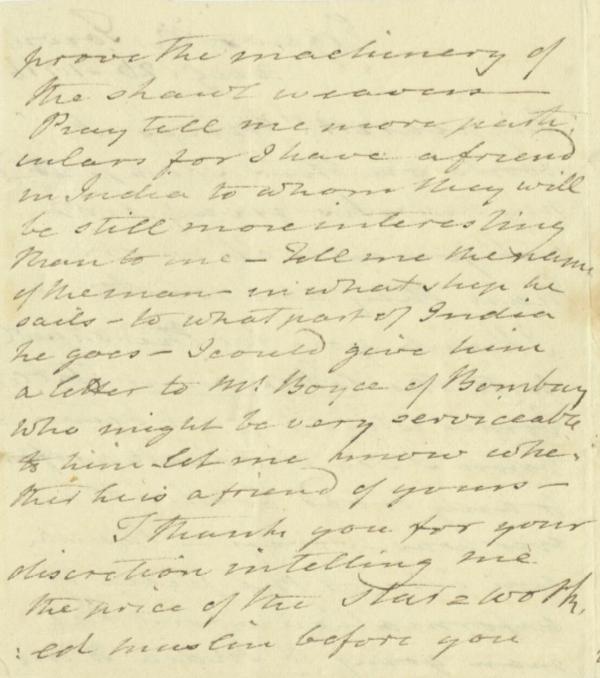 prove the machinery of
the shawl weavers —
Pray tell me more parti
culars for I have a friend
in India to whom they will
be still more interesting
than to me — Tell me the name
of the man — in what ship he
sails — to what part of India
he goes — I could give him
a letter to Mr. Boyce of Bombay
who might be very serviceable
to him Let me know whe-
ther he is a friend of yours —
I thank you for your
discretion in telling me
the price of the star = work,
: ed muslin before you